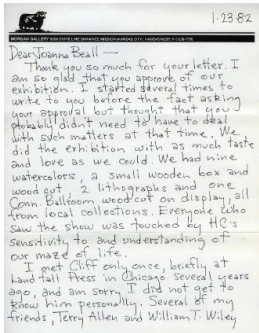 1·23·82
MORGAN GALLERY 5006 STATE LINE SHAWNEE MISSION/KANSAS CITY, KANSAS 66205
Dear Joanna Beall —
Thank you so much for your letter. I
am so glad that you approve of our
exhibition. I started several times to
write to you before the fact asking
your approval but thought that you
probably didn't need to have to deal
with such matters at that time. We
did the exhibition with as much taste
and love as we could. We had nine
watercolors, a small wooden box and
wood cut, 2 lithographs and one
Conn. Ballroom woodcut on display, all
from local collections. Everyone who
saw the show was touched by HC's
sensitivity to and understanding of
our maze of life.
I met Cliff only once, briefly at
Landfall Press in Chicago several years
ago, and am sorry I did not get to
know him personally. Several of my
friends, Terry Allen and William T. Wiley